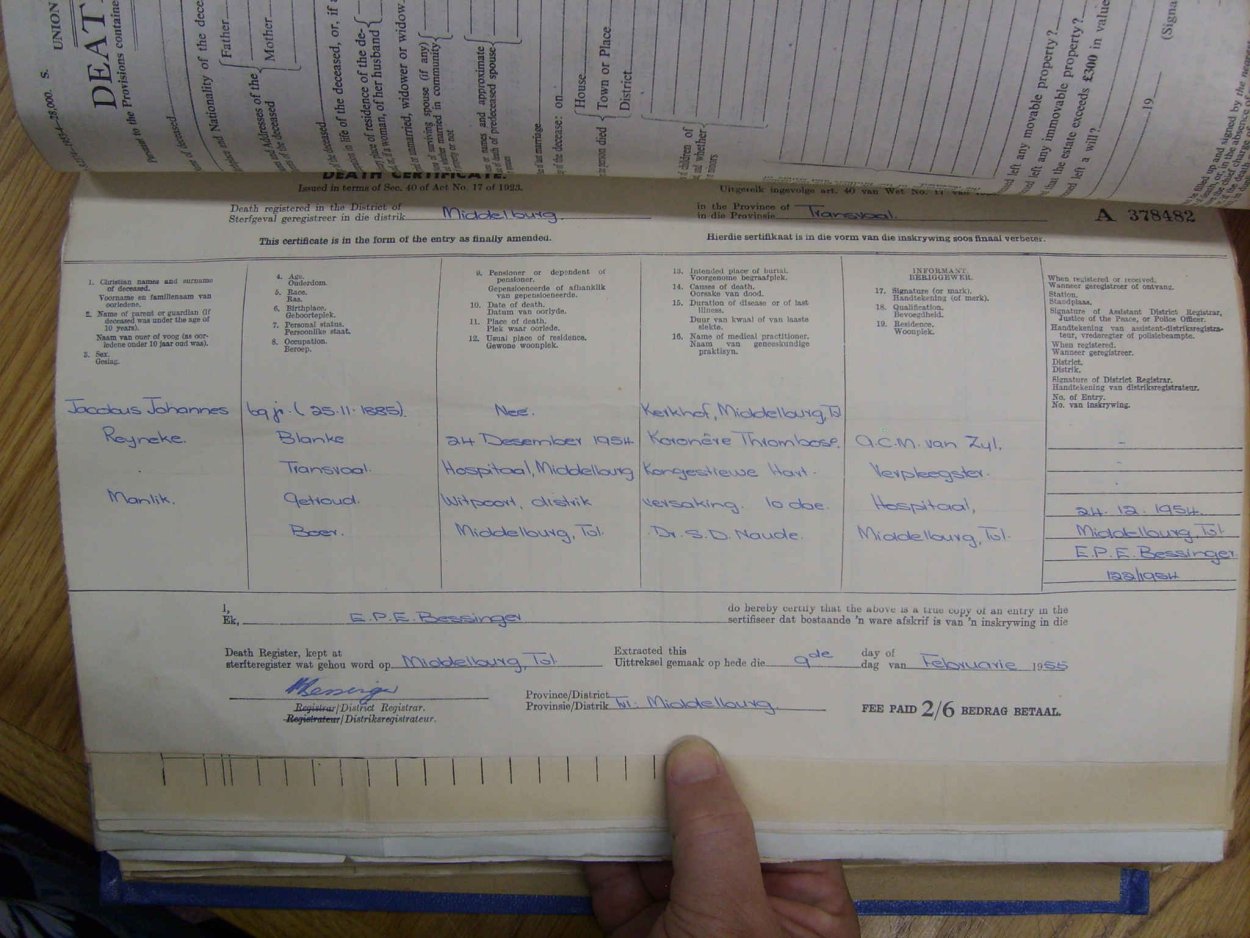 UNION
S.
DEAT
Provisions containe
Nationality of the dece
Father
Mother
Addresses of the
of the deceased
of the deceased, or, if a
place of residence of the de-
if a woman, of her husband
or unmarried, widower or widow.
of surviving spouse (if any)
whether married in community
or names and approximate
of death of predeceased spouse
of the decease: on
House
Town or Place
District
person died
children of
and whether
left any movable property?
left any immovable property?
that the estate exceeds £300 in value
left a will?
19
(Signa
DEATH CERTIFICATE.
Issued in terms of Sec. 40 of Act No. 17 of 1923.
Uitgereik ingevolge art. 40 van Wet No.
Death registered in the District of
Sterfgeval geregistreer in die distrik Middelburg.
in the Province of
in die Provinsie Transvaal.
A 378482
This certificate is in the form of the entry as finally amended.
Hierdie sertifikaat is in die vorm van die inskrywing soos finaal verbeter.
1. Christian names and surname
of deceased.
Voorname en familienaam van
oorledene.
2. Name of parent or guardian (if
deceased was under the age of
10 years).
Naam van ouer of voog (as oor-
ledene onder 10 jaar oud was).
3. Sex.
Geslag.
4. Age.
Ouderdom.
5. Race.
Ras.
6. Birthplace.
Geboorteplek.
7. Personal status.
Persoonlike staat.
8. Occupation.
Beroep.
9. Pensioner or dependent of
pensioner.
Gepensioeneerde of afhanklik
van gepensioeneerde.
10. Date of death.
Datum van oorlyde.
11. Place of death.
Plek waar oorlede.
12. Usual place of residence.
Gewone woonplek.
13. Intended place of burial.
Voorgenome begraafplek.
14. Causes of death.
Oorsake van dood.
15. Duration of disease or of last
illness.
Duur van kwaal of van laaste
siekte.
16. Name of medical practitioner.
Naam van geneeskundige
praktisyn.
INFORMANT
BERIGGEWER.
17. Signature (or mark).
Handtekening (of merk).
18. Qualification.
Bevoegdheid.
19. Residence.
Woonplek.
When registered or received.
Wanneer geregistreer of ontvang.
Station.
Standplaas.
Signature of Assistant District Registrar,
Justice of the Peace, or Police Officer.
Handtekening van assistent-distriksregistra-
teur, vrederegter of polisiebeampte.
When registered.
Wanneer geregistreer.
District.
Distrik.
Signature of District Registrar.
Handtekening van distriksregistrateur.
No. of Entry.
No. van inskrywing.
Jacobus Johannes
Reyneke.
Manlik.
69 jr. (25.11.1885).
Blanke
Transvaal.
Getroud.
Boer.
Nee.
24 Desember 1954
Hospitaal, Middelburg
Witpoort, distrik
Middelburg, Tvl.
Kerkhof, Middelburg, Tvl
Koronêre Thrombose.
Kongestiewe Hart-
versaking. 10 dae.
Dr. S.D. Naude.
A.C.M. van Zyl.
Verpleegster.
Hospitaal,
Middelburg, Tvl.
-
-
24.12.1954.
Middelburg, Tvl
E.P.E. Bessinger
122/1954
I,
Ek, E.P.E. Bessinger
do hereby certify that the above is a true copy of an entry in the
sertifiseer dat bostaande 'n ware afskrif is van 'n inskrywing in die
Death Register, kept at
sterfteregister wat gehou word op Middelburg, Tvl
Extracted this
Uittreksel gemaak op hede die 9de
day of
dag van Februarie 1955
Bessinger
Registrar/District Registrar.
Registrateur/Distriksregistrateur.
Province/District
Provinsie/Distrik Tvl. Middelburg.
FEE PAID 2/6 BEDRAG BETAAL.